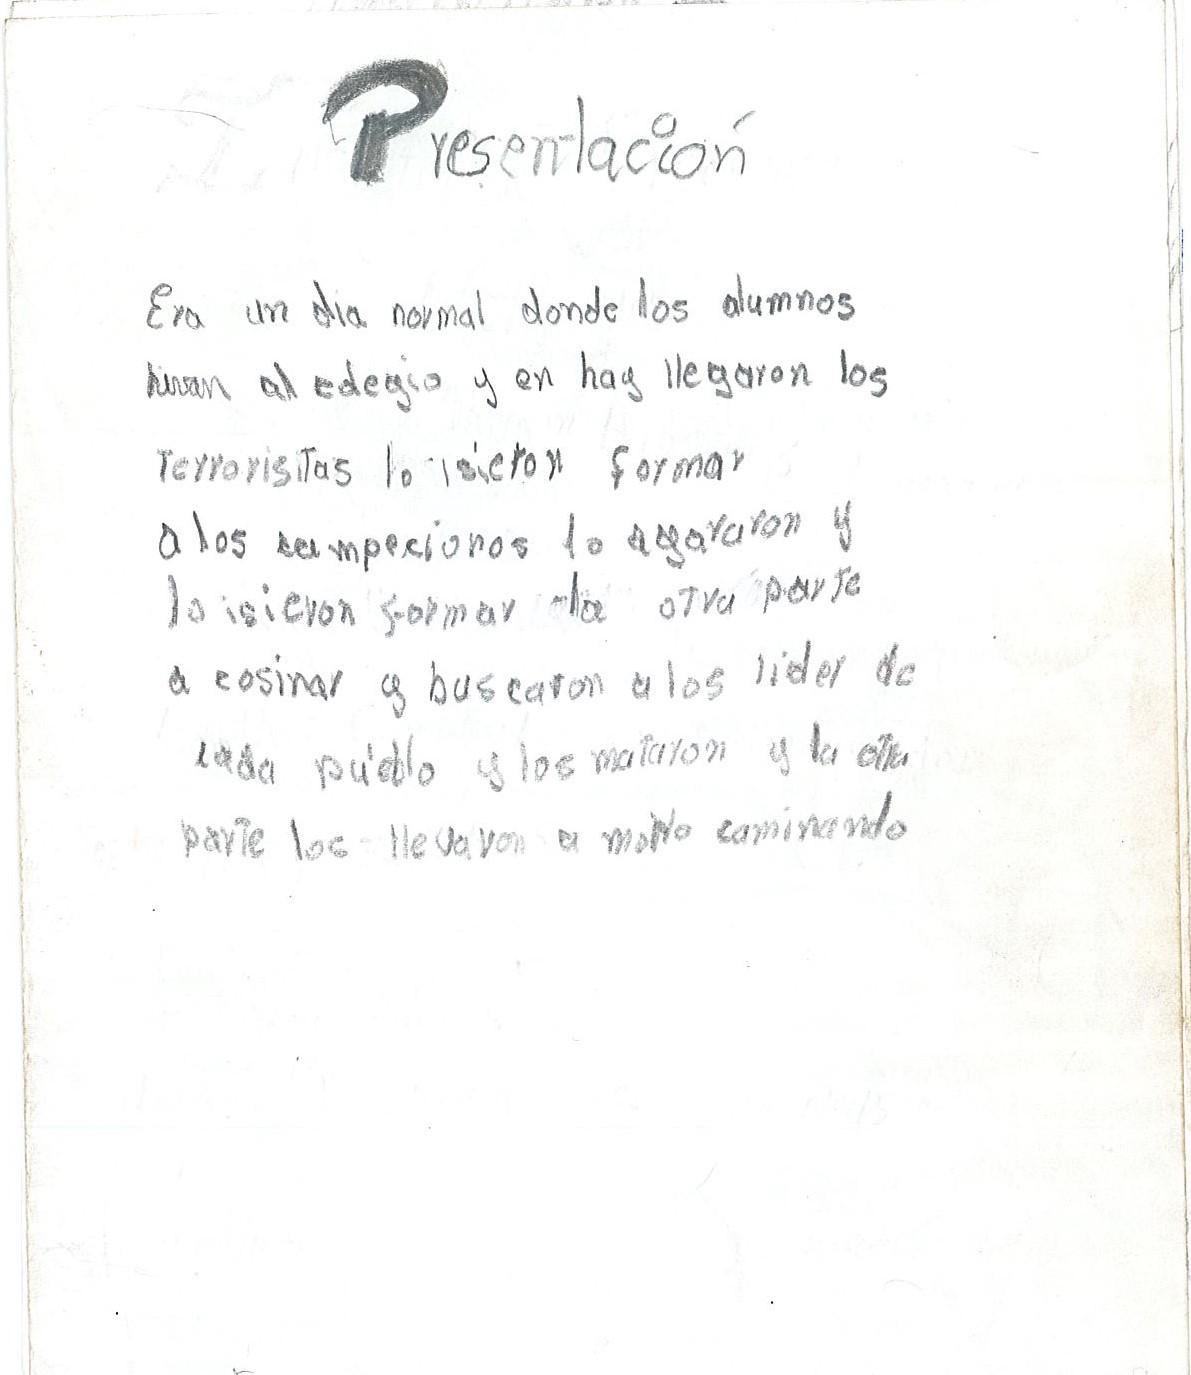 Presentación
Era un dia normal donde los alumnos
hivan al colegio y en hay llegaron los
Terrorisitas lo isieron formar
a los campecionos lo agararon y
lo isieron formar la otra parte
a cosinar y buscaron a los lider de
cada pueblo y los mataron y la otra
parte los llevaron a monte caminando